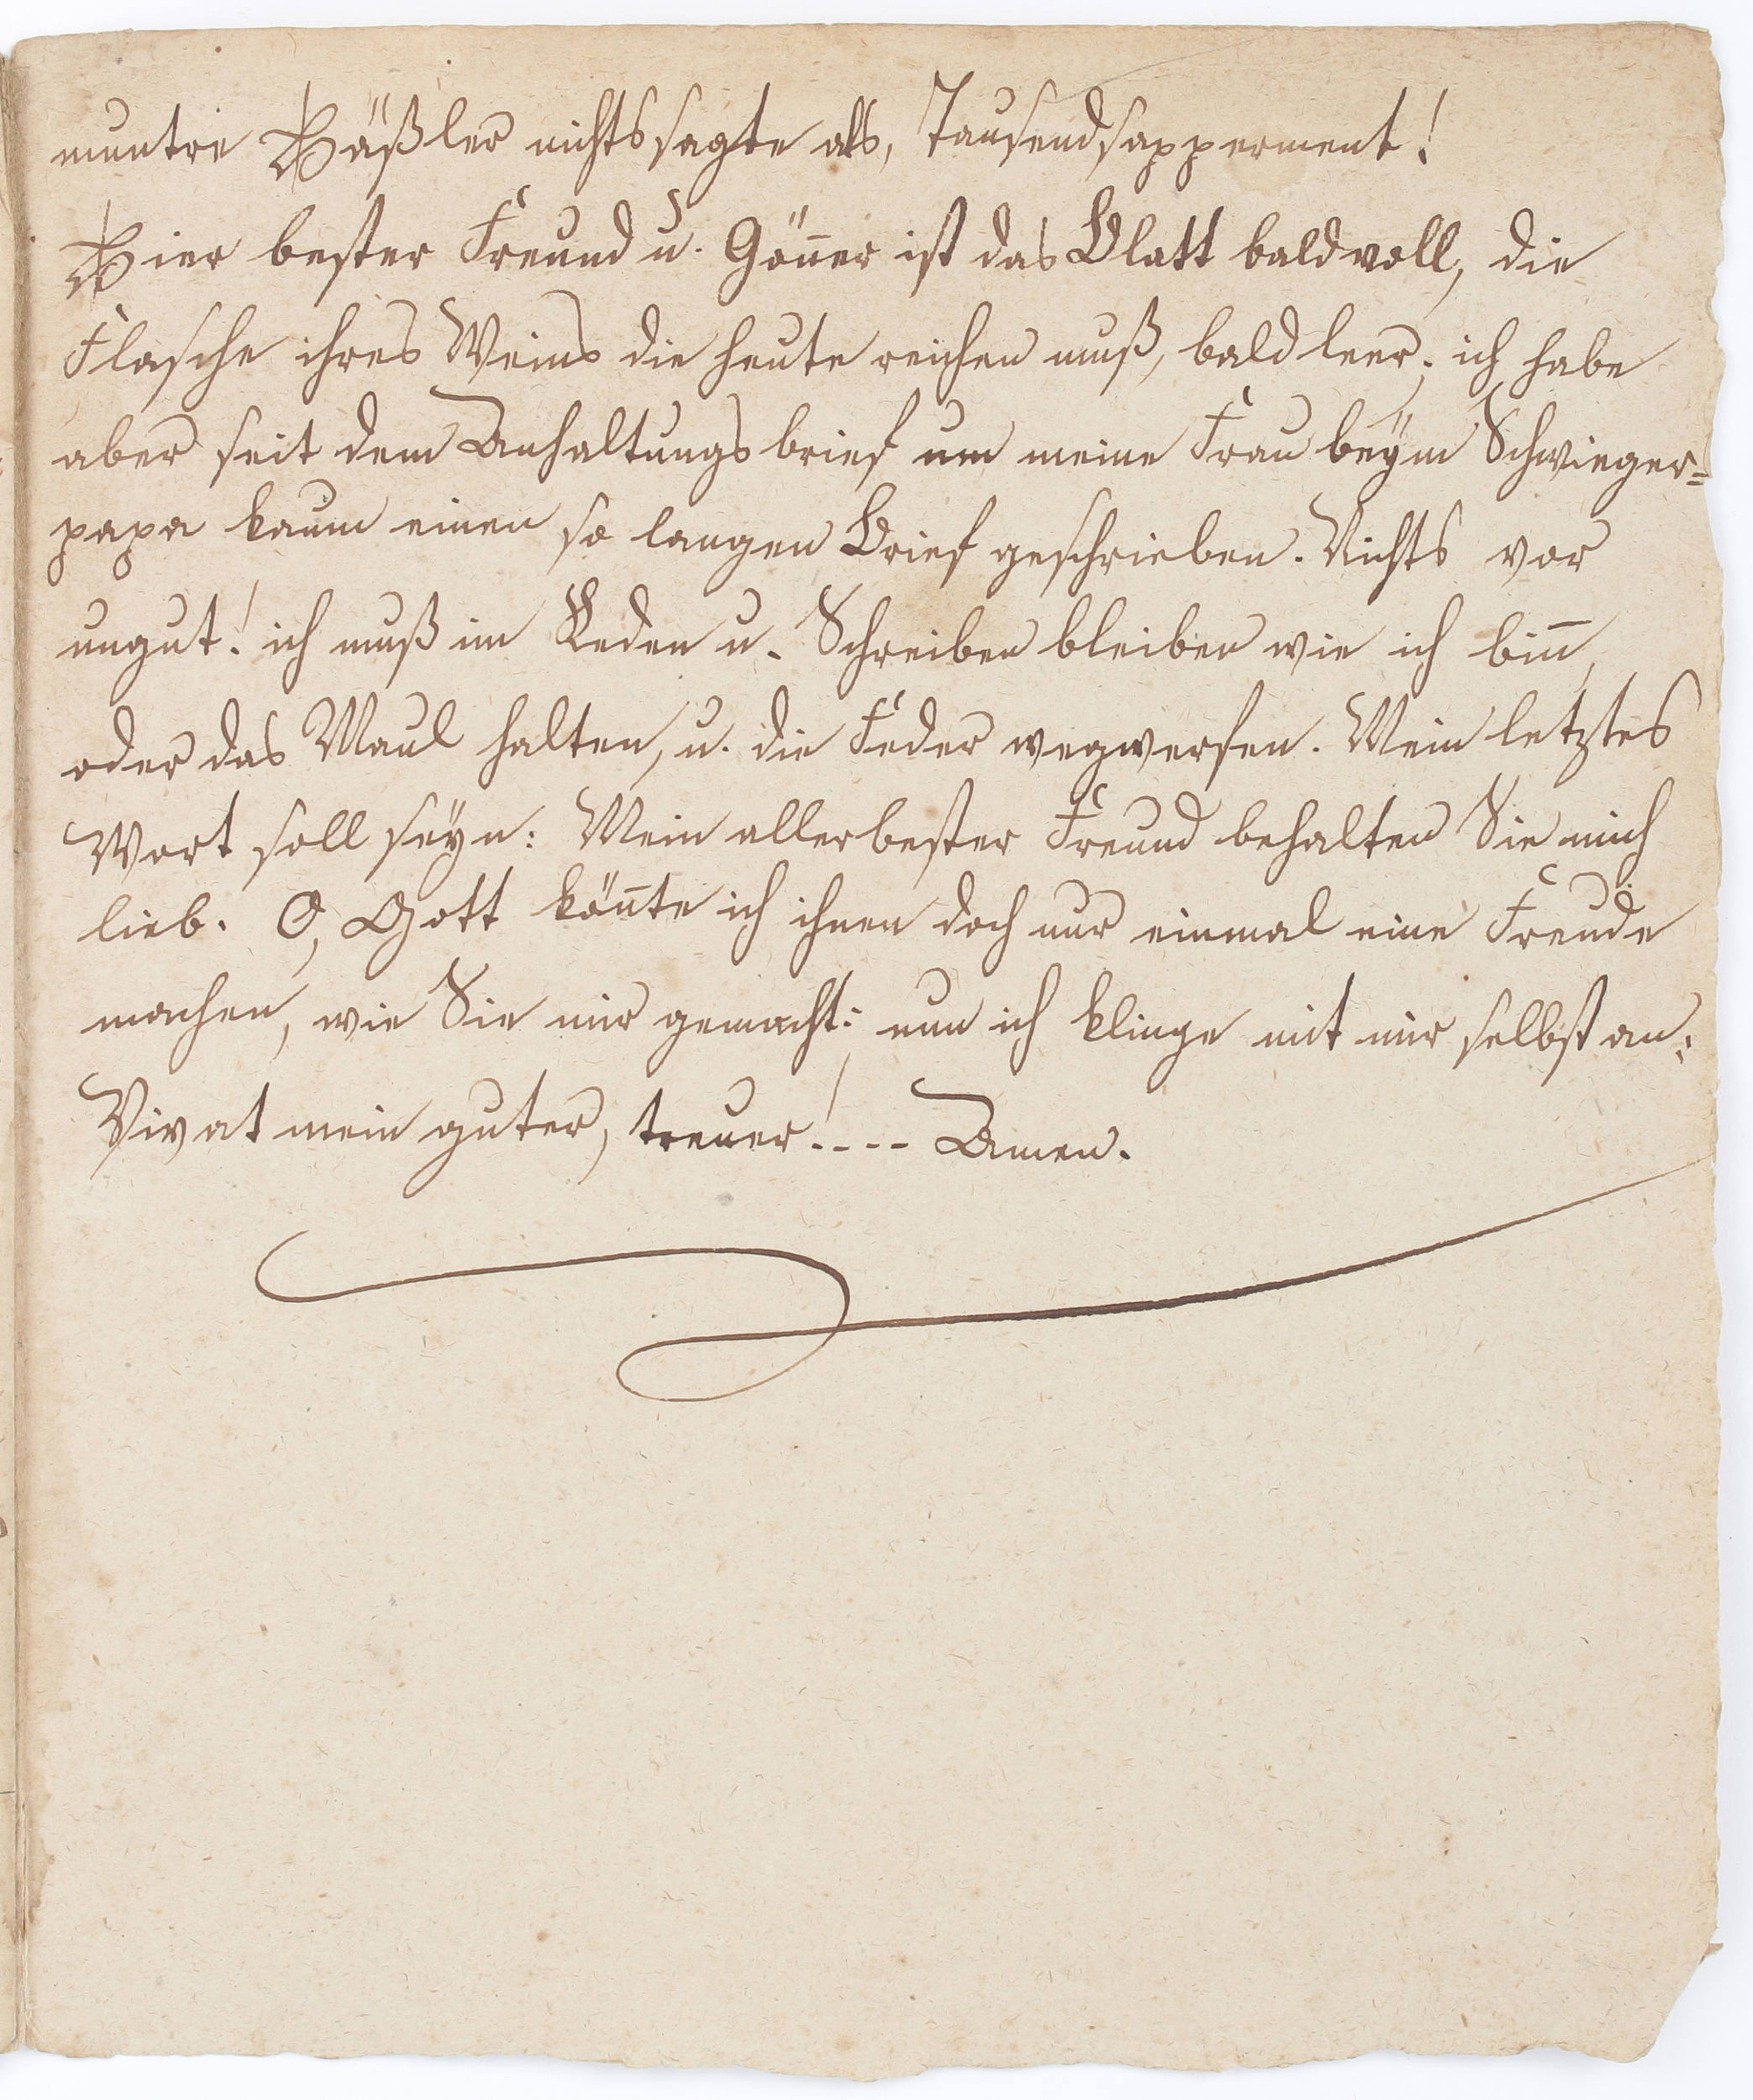 muntre Häßler nichts sagte als, Tausendsapperment!
Hier bester Freund u. Göner ist das Blatt bald voll, die
Flasche ihres Weins die heute reichen muß, bald leer; ich habe
aber seit dem Anhaltungsbrief um meine Frau beym Schwieger=
papa kaum einen so langen Brief geschrieben. Nichts vor
ungut! ich muß im Reden u. Schreiben bleiben wie ich bin̅,
oder das Maul halten, u. die Feder wegwerfen. Mein letztes
Wort soll seyn: Mein allerbester Freund behalten Sie mich
lieb. O, Gott kön̅te ich ihnen doch nur einmal eine Freude
machen, wie Sie mir gemacht; nun ich klinge mit mir selbst an:
Vivat mein guter, treuer! --- Amen.